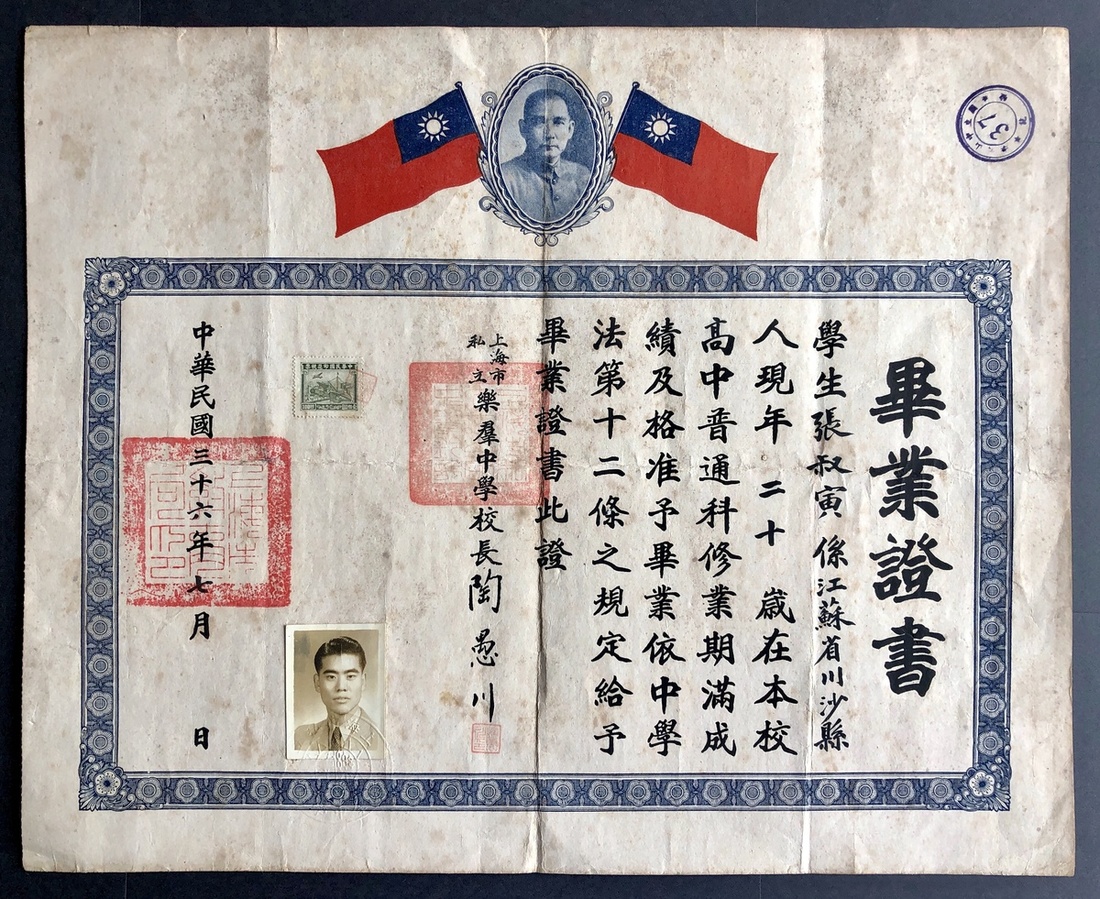 畢業證書
學生張叔寅係江蘇省川沙縣
人現年二十歲在本校
高中普通科修業期滿成
績及格准予畢業依中學
法第十二條之規定給予
畢業證書此證
上海市
私立
樂羣中學校長陶愚川
中華民國三十六年七月 日
37